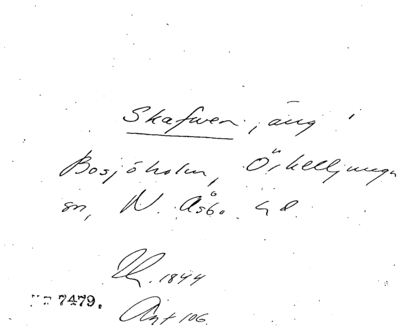 Skafwen, äng i
Bosjöholm, Örkelljunga
sn, N. Åsbo hd.
1844
7479.
Akt 106